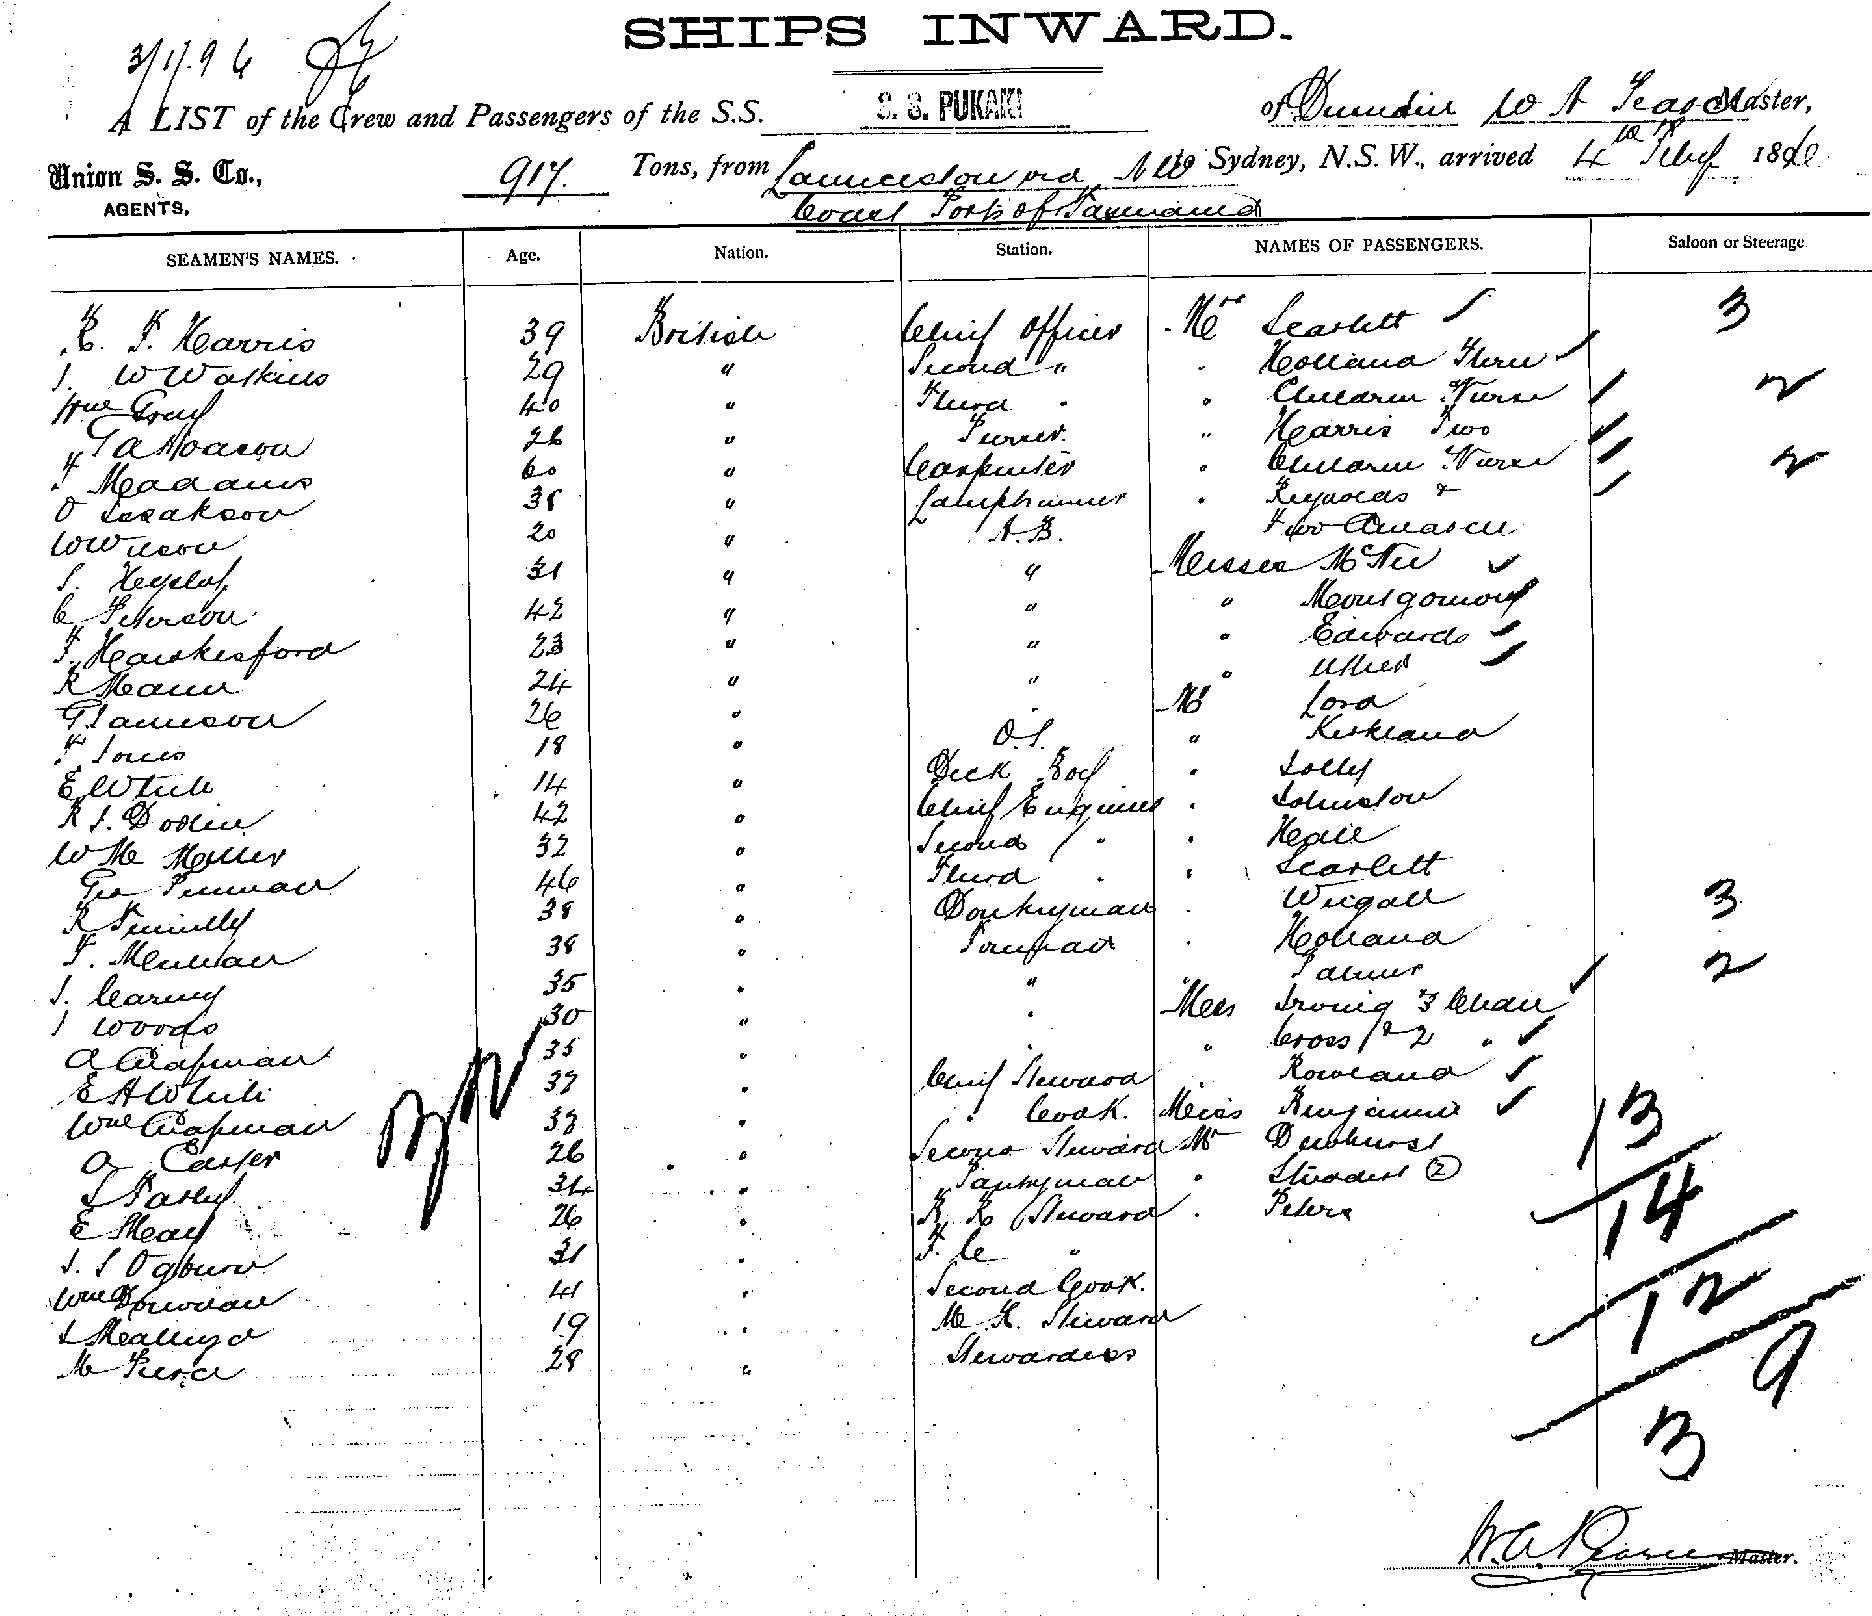 SHIPS INWARD.
3/1/96
A LIST of the Crew and Passengers of the S.S. S. S. PUKAKI of Dunedin W A Master,
Union S. S. Co., 917. Tons, from Launceston via NW Sydney, N.S.W., arrived 4th Feby 1896
AGENTS,
Coast Ports of Tasmania
SEAMEN'S NAMES. Age. Nation. Station. NAMES OF PASSENGERS. Saloon or Steerage
F. Harris 39 British Chief Officer Mrs Scarlett 3
J. W Watkins 29 " Second " " Holland Three
Wm Gray 40 " Third " " Children & Nurse 2
26 " Purser. " Harris Two
60 " Carpenter " Children & Nurse 2
O Isakson 38 " Lamptrimmer " Reynolds &
W Wilson 20 " A.B. Two Children
J. Heyslop 31 " " Misses McNee
C Peterson 42 " " " Montgomery
F. Hawkesford 23 " " " Edwards
R Mann 24 " " " Usher
G Jamieson 26 " " Mr Lord
F Jones 18 " O.S. " Kirkland
E White 14 " Deck Boy " Jolly
R J. Dodin 42 " Chief Engineer " Johnston
Wm Miller 32 " Second " " Hall
Geo Penman 46 " Third " " Scarlett
R 38 " Donkeyman " Weigall 3
38 " Fireman " Holland
J. Carney 35 " " " Palmer 2
J Woods 30 " " Mrs Irving 3 Chldn
A Chapman 35 " " " Cross & 2 "
E A White 37 " Chief Steward " Rowland
Wm Chapman 38 " " Cook. Miss Benjamin 13
A Carter 26 " Second Steward Mr Dewhurst
34 " Pantryman " 2
E May 26 " Steward " Peters 14
J. J Ogburn 31 " F. C "
Wm 41 " Second Cook. 12
19 " Steward 9
M 28 " Stewardess
3
W. A. Pearse Master.